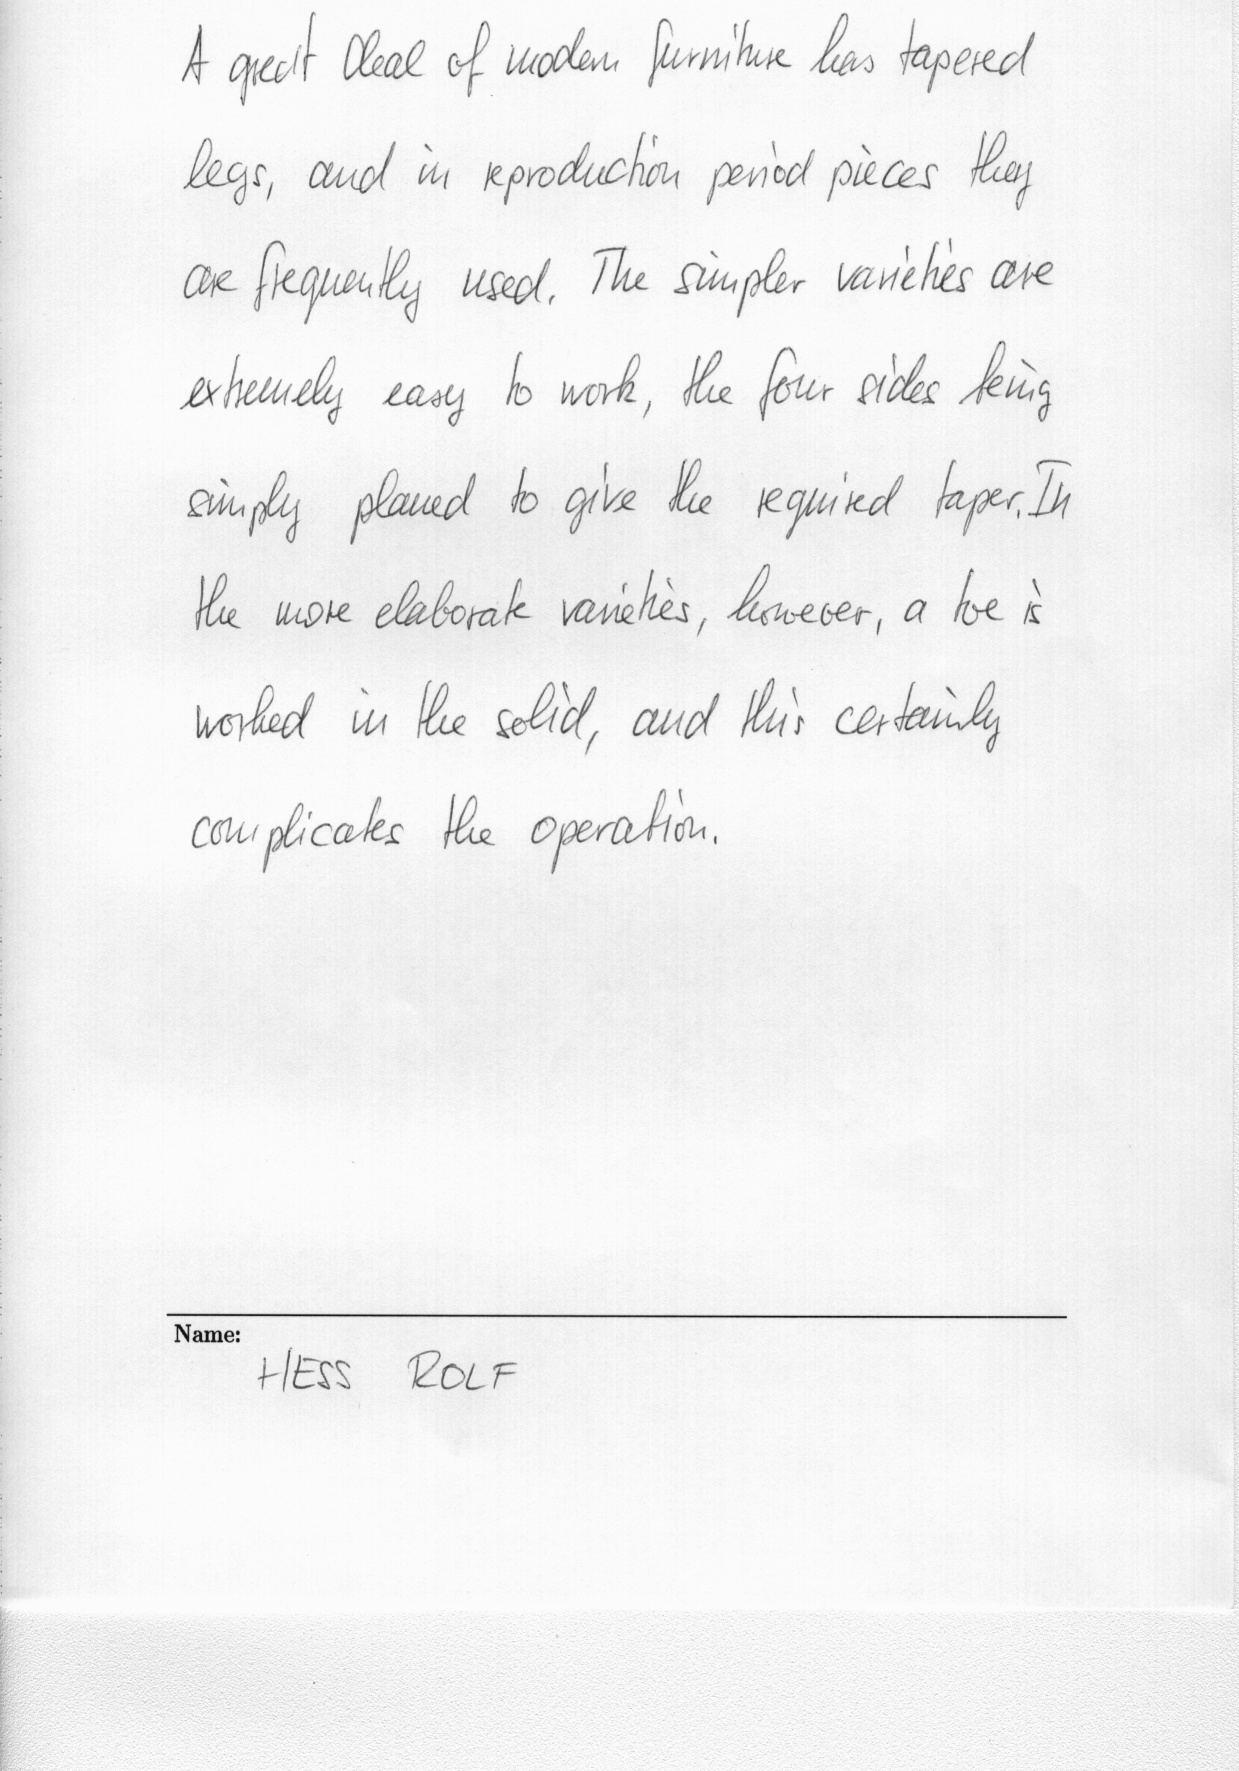 A great Deal of modern furniture has tapered
legs, and in reproduction period pieces they
are frequently used. The simpler varieties are
extremely easy to work, the four sides being
simply planed to give the required taper. In
the more elaborate varieties, however, a toe is
worked in the solid, and this certainly
complicates the operation.
Name:
HESS ROLF